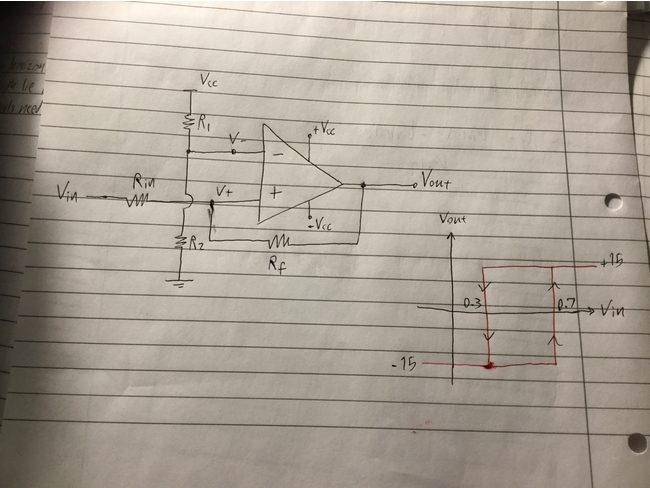 Vcc
R1
V-
+Vcc
-
Rin
V+
Vin
+
Vout
-Vcc
R2
Rf
Vout
+15
0.3
0.7
Vin
-15